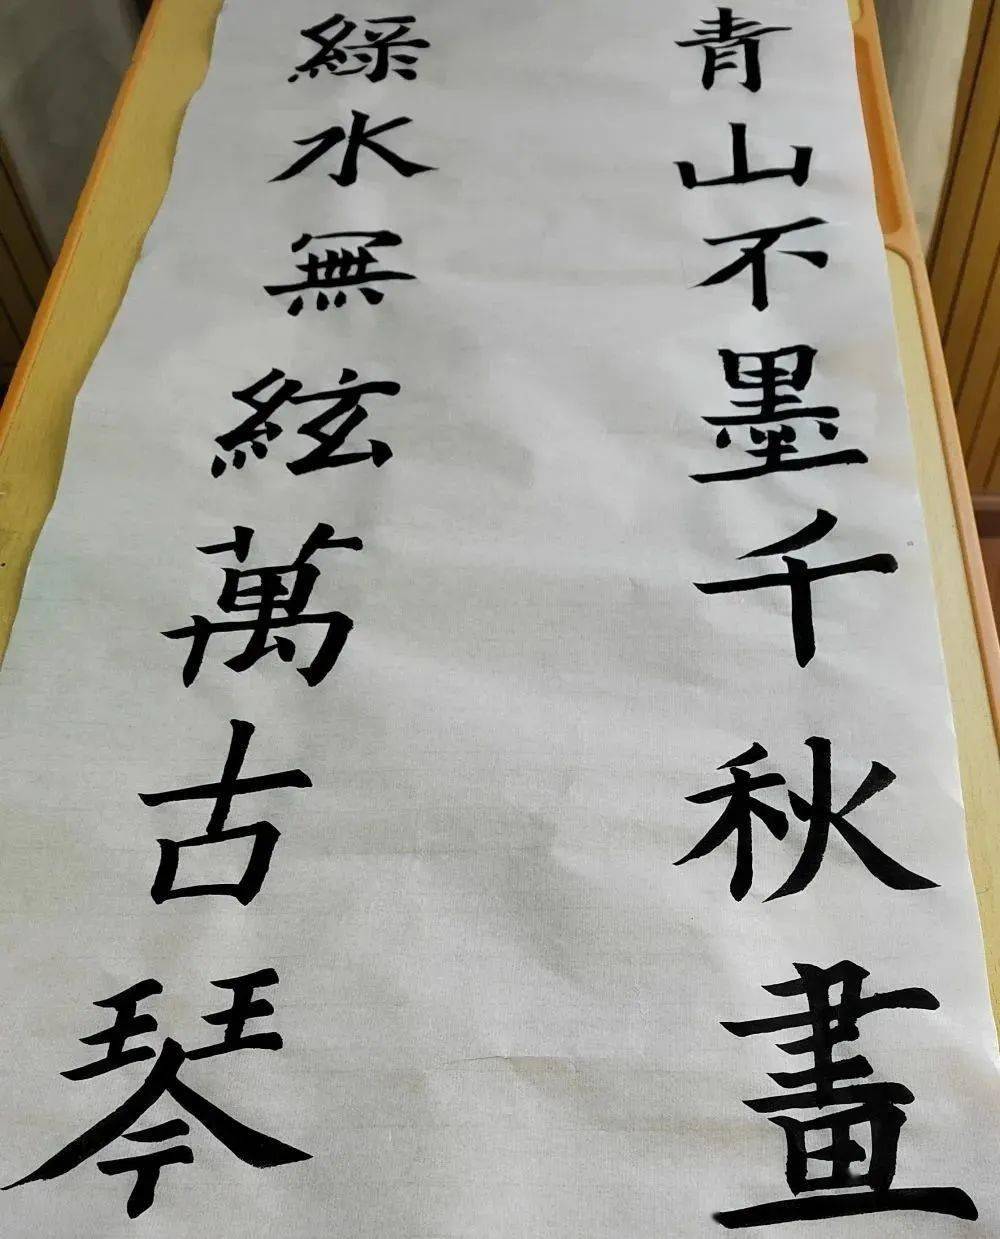 青山不墨千秋畫
綠水無絃萬古琴